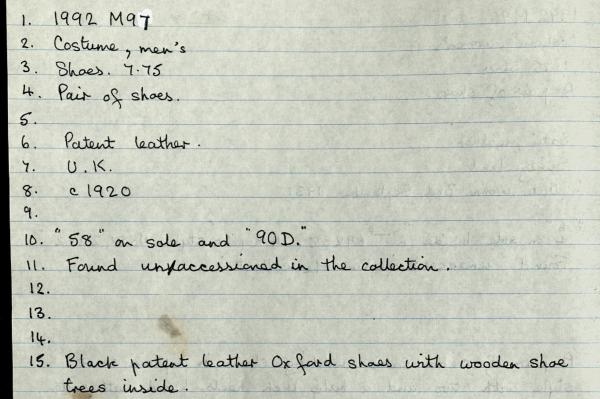 1. 1992 M97
2. Costume, men's
3. Shoes. 7.75
4. Pair of shoes.
5.
6. Patent leather.
7. U.K.
8. c 1920
9.
10. "58" on sole and "90D."
11. Found unaccessioned in the collection.
12.
13.
14.
15. Black patent leather Oxford shoes with wooden shoe
trees inside.